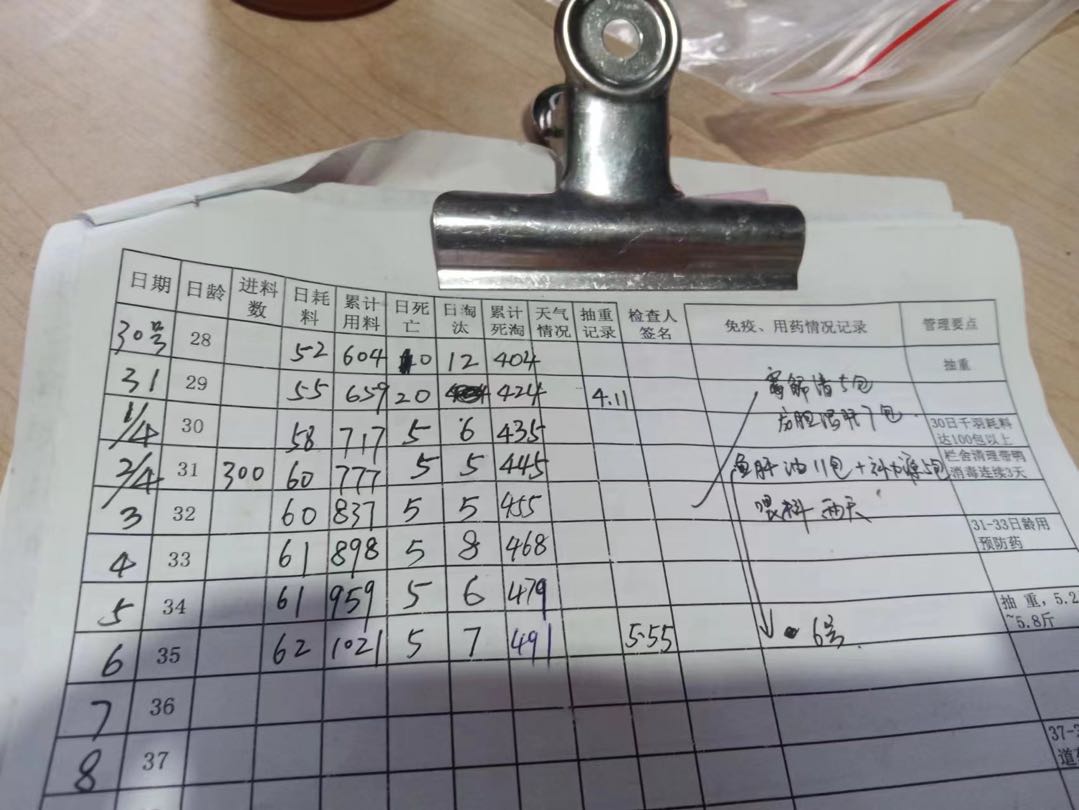 日期 日龄 进料数 日耗料 累计用料 日死亡 日淘汰 累计死淘 天气情况 抽重记录 检查人签名 免疫、用药情况记录 管理要点
30号 28 52 604 10 12 404 抽重
31 29 55 659 20 424 4.11 5包
1/4 30 58 717 5 6 435 7包 30日千羽耗料达100包以上
2/4 31 300 60 777 5 5 445 鱼肝油11包+ 5包 栏舍清理带鸭消毒连续3天
3 32 60 837 5 5 455 喂料两天
4 33 61 898 5 8 468 31-33日龄用预防药
5 34 61 959 5 6 479
6 35 62 1021 5 7 491 5.55 6号 抽重,5.2~5.8斤
7 36
8 37 37-